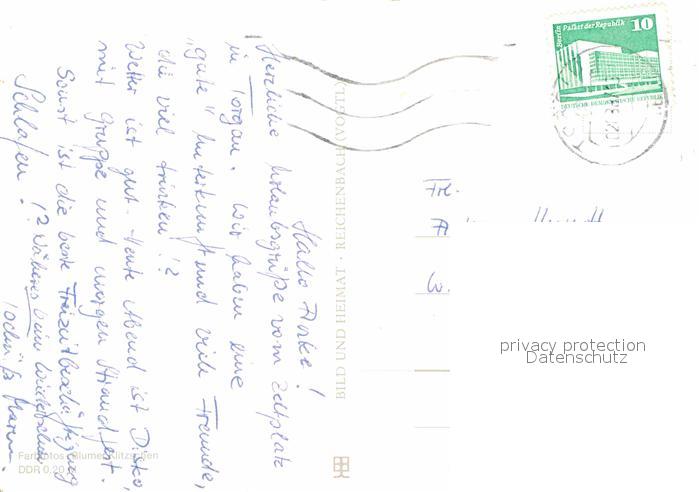 Hallo Anke!
Herzliche Urlaubsgrüße vom Zeltplatz
in Torgau. Wir haben eine
"gute" Unterkunft und viele Freunde,
die viel trinken!?
Wetter ist gut. Heute Abend ist Disko
mit Gruppe und morgen Strandfest.
Sonst ist die beste Freizeitbeschäftigung
Schlafen!? Näheres beim Wiedersehen
BILD UND HEIMAT · REICHENBACH (VOGTL)
Farbfotos: Blumen Klitzschen
DDR 0,20
Berlin Palast der Republik
10
Fr.
A
W.
privacy protection
Datenschutz